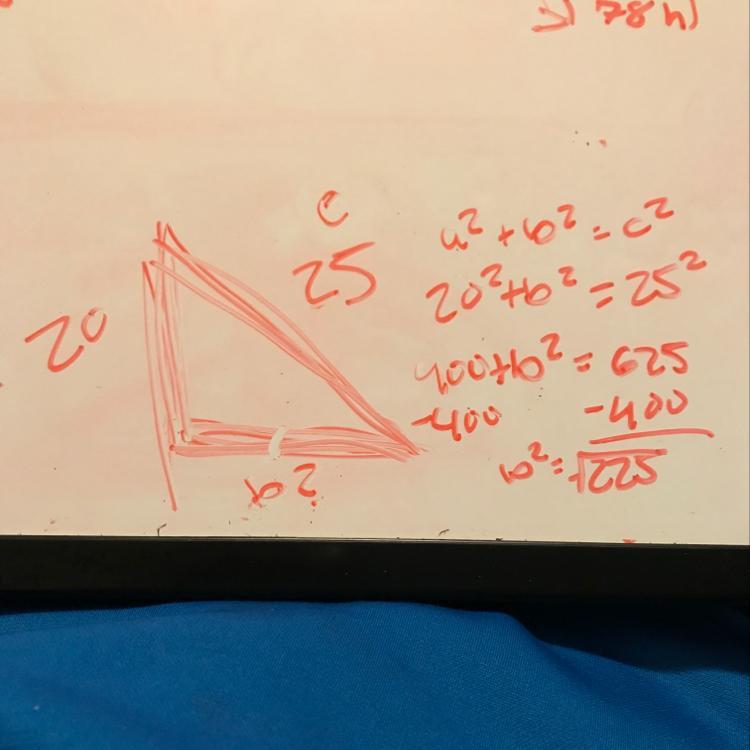 20
c
25
b?
a² + b² = c²
20² + b² = 25²
400 + b² = 625
-400 -400
b² = √225